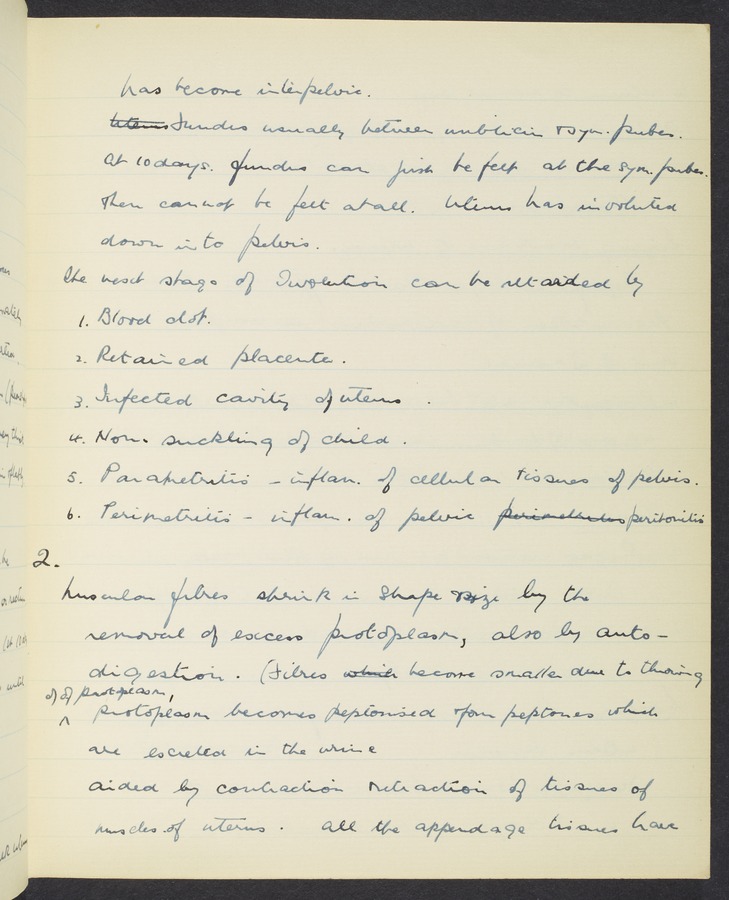 has become interpelvic.
Uterus Fundus usually between umbilicus & sym. pubes.
At 10 days. fundus can just be felt at the sym. pubes.
Then cannot be felt at all. Uterus has involuted
down into pelvis.
The next stage of Involution can be retarded by
1. Blood clot.
2. Retained placenta.
3. Infected cavity of uterus.
4. Non- suckling of child.
5. Parametritis - inflam. of cellular tissues of pelvis.
6. Perimetritis - inflam. of pelvic perimetritis peritonitis
2.
Muscular fibres shrink in shape & size by the
removal of excess protoplasm, also by auto-
digestion. (Fibres which become smaller due to throwing
of of protoplasm,
^ protoplasm becomes peptonised & form peptones which
are escreted in the urine
aided by contraction & retraction of tissues of
muscles of uterus. All the appendage tissues have